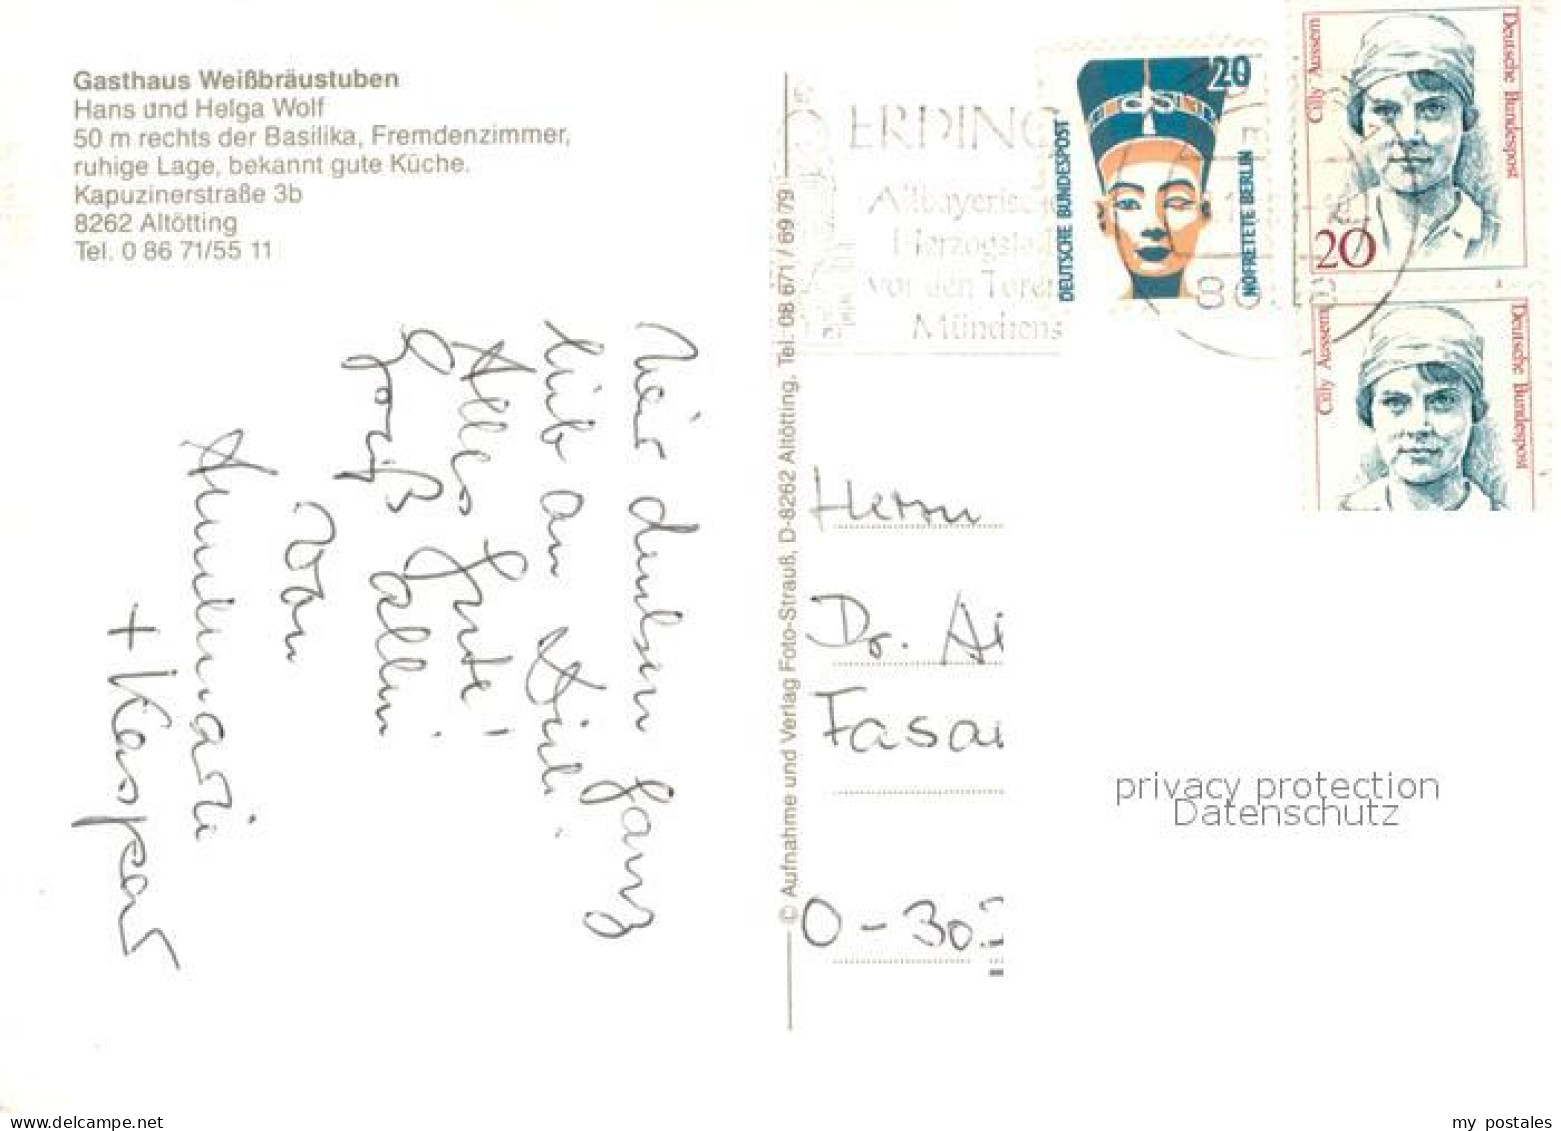 Gasthaus Weißbräustuben
Hans und Helga Wolf
50 m rechts der Basilika, Fremdenzimmer,
ruhige Lage, bekannt gute Küche.
Kapuzinerstraße 3b
8262 Altötting
Tel. 0 86 71/55 11
Wir denken ganz
lieb an Dich!
Alles Gute!
Gruß
Von
Annemarie
+ Kaspar
© Aufnahme und Verlag Foto-Strauß, D-8262 Altötting, Tel. 08 671 / 69 79
ERDING
Altbayerische
Herzogstadt
vor den Toren
Münchens
80
20
DEUTSCHE BUNDESPOST
NOFRETETE BERLIN
Cilly Aussem
Deutsche Bundespost
20
Cilly Aussem
Deutsche Bundespost
Herrn
Dr. Ai
Fasa
O-30
privacy protection
Datenschutz
www.delcampe.net
my_postales